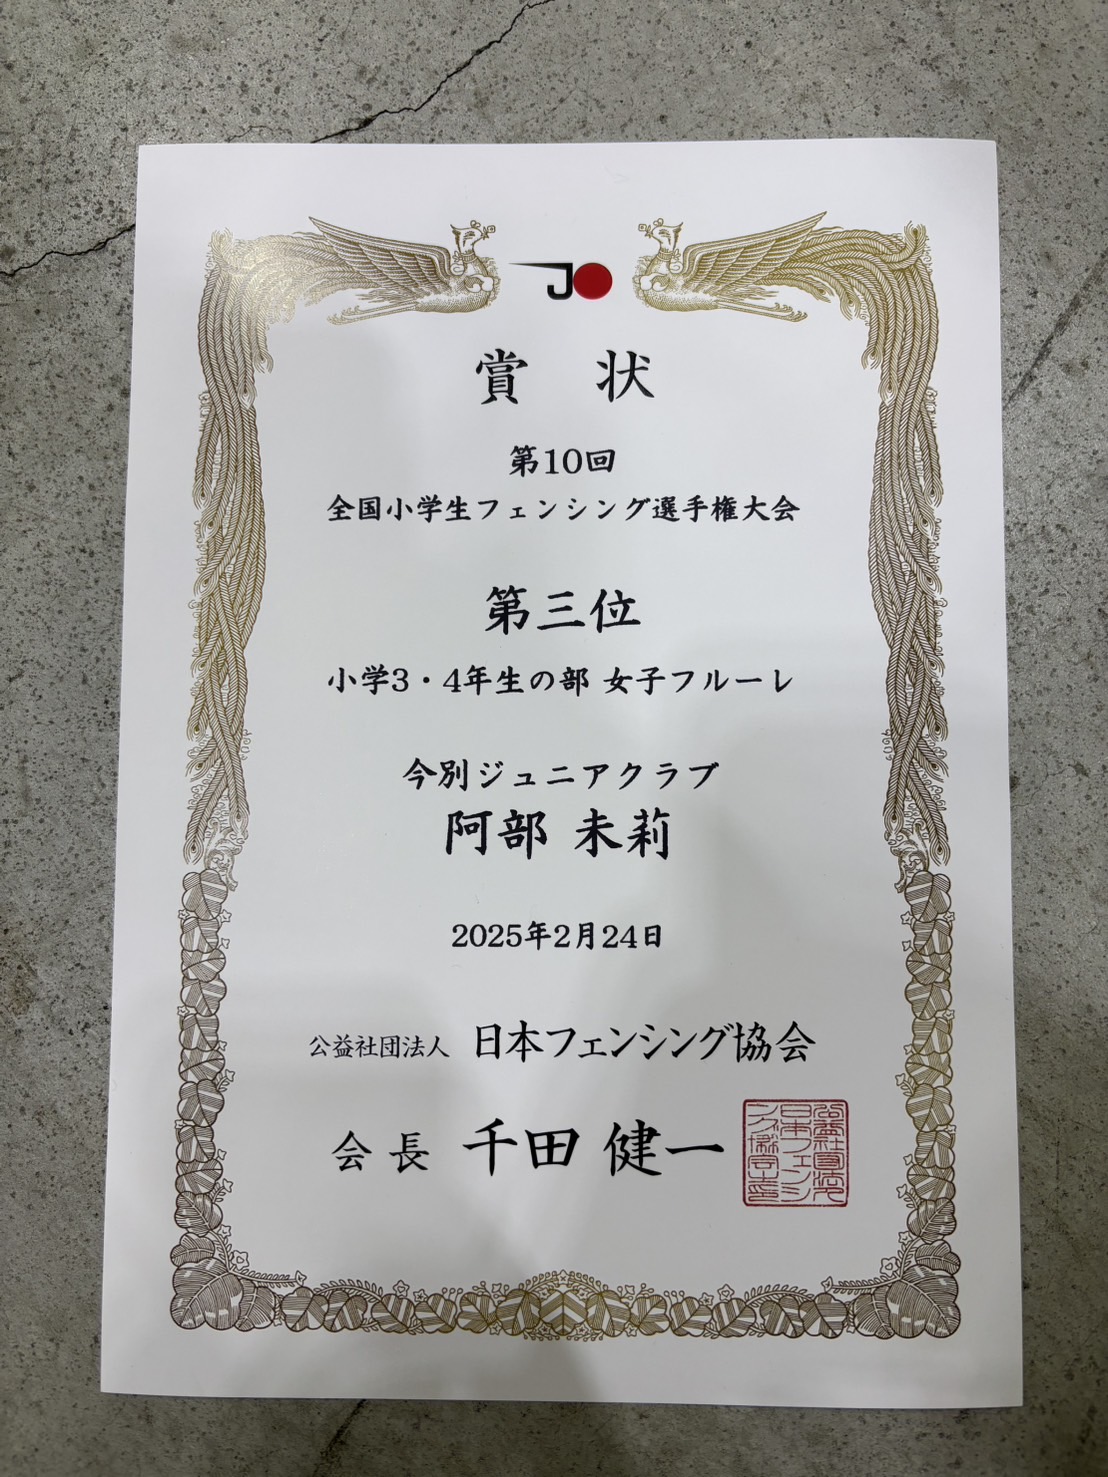 JO
賞 状
第10回
全国小学生フェンシング選手権大会
第三位
小学3・4年生の部 女子フルーレ
今別ジュニアクラブ
阿部 未莉
2025年2月24日
公益社団法人 日本フェンシング協会
会長 千田 健一